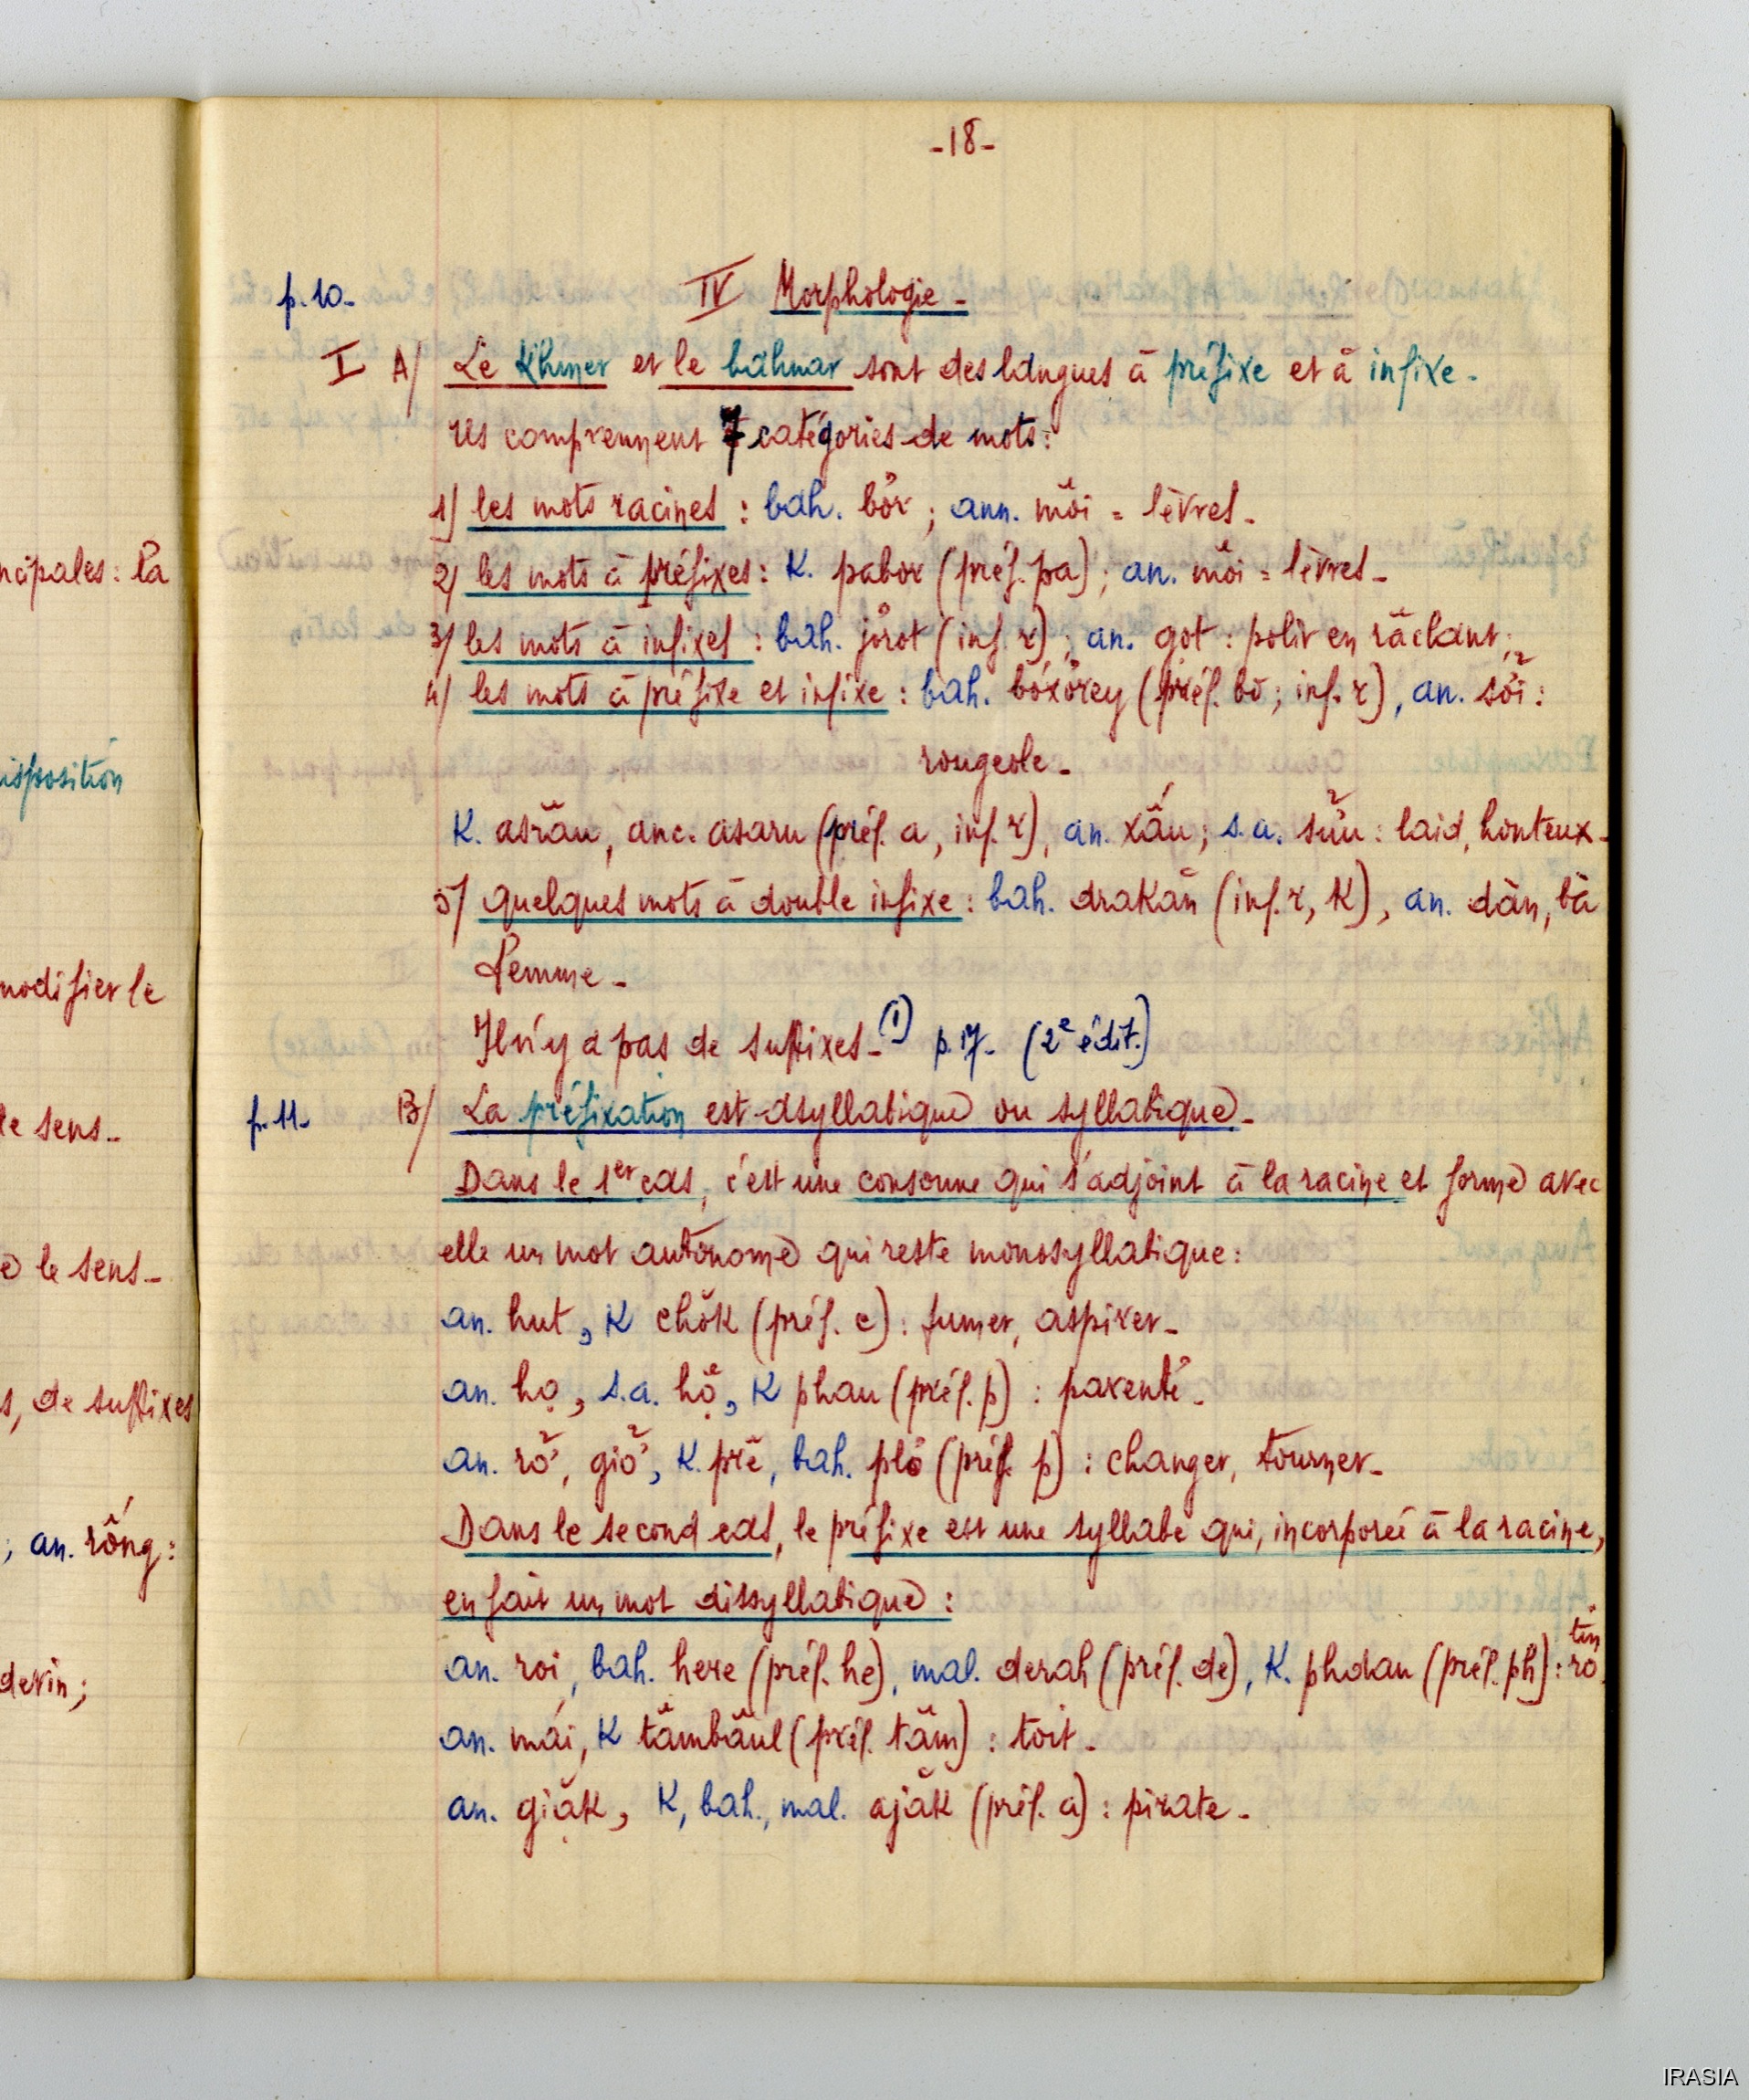 -18-
p.10-
IV Morphologie-
I A/ Le Khmer et le băhnar sont des langues à préfixe et à infixe-
Ils comprennent 7 catégories de mots:
1) les mots racines : bah. bŏr ; ann. môi = lèvres-
2) les mots à préfixes : K. pabor (préf. pa) ; an. môi = lèvres-
3) les mots à infixes : bah. jŏrot (inf. r) ; an. gọt : polir en râclant;
4) les mots à préfixe et infixe : bah. (préf. bŏ ; inf. r), an. sởi :
rougeole-
K. asrău, anc. asaru (préf. a, inf. r), an. xấu ; s.a. : laid, honteux-
5) quelques mots à double infixe : bah. drakăn (inf. r, K), an. đàn, bà
femme-
Il n'y a pas de suffixes-(1) p.17- (2e édit.)
p.11-
B/ La préfixation est asyllabique ou syllabique-
Dans le 1er cas, c'est une consonne qui s'adjoint à la racine et forme avec
elle un mot autonome qui reste monosyllabique :
an. hut, K chŏk (préf. c) : fumer, aspirer-
an. họ, s.a. hộ, K phau (préf. p) : parenté-
an. rở, giở, K. prĕ, bah. plŏ (préf. p) : changer, tourner-
Dans le second cas, le préfixe est une syllabe qui, incorporée à la racine,
en fait un mot dissyllabique :
an. roi, bah. here (préf. he), mal. derah (préf. de), K. phdau (préf. ph) : rotin.
an. mái, K tâmbâul (préf. tâm) : toit-
an. giặk, K, bah., mal. ajăk (préf. a) : pirate-
ncipales : la
isposition
modifier le
le sens-
e le sens-
s, de suffixes
; an. rống :
devin ;
IRASIA